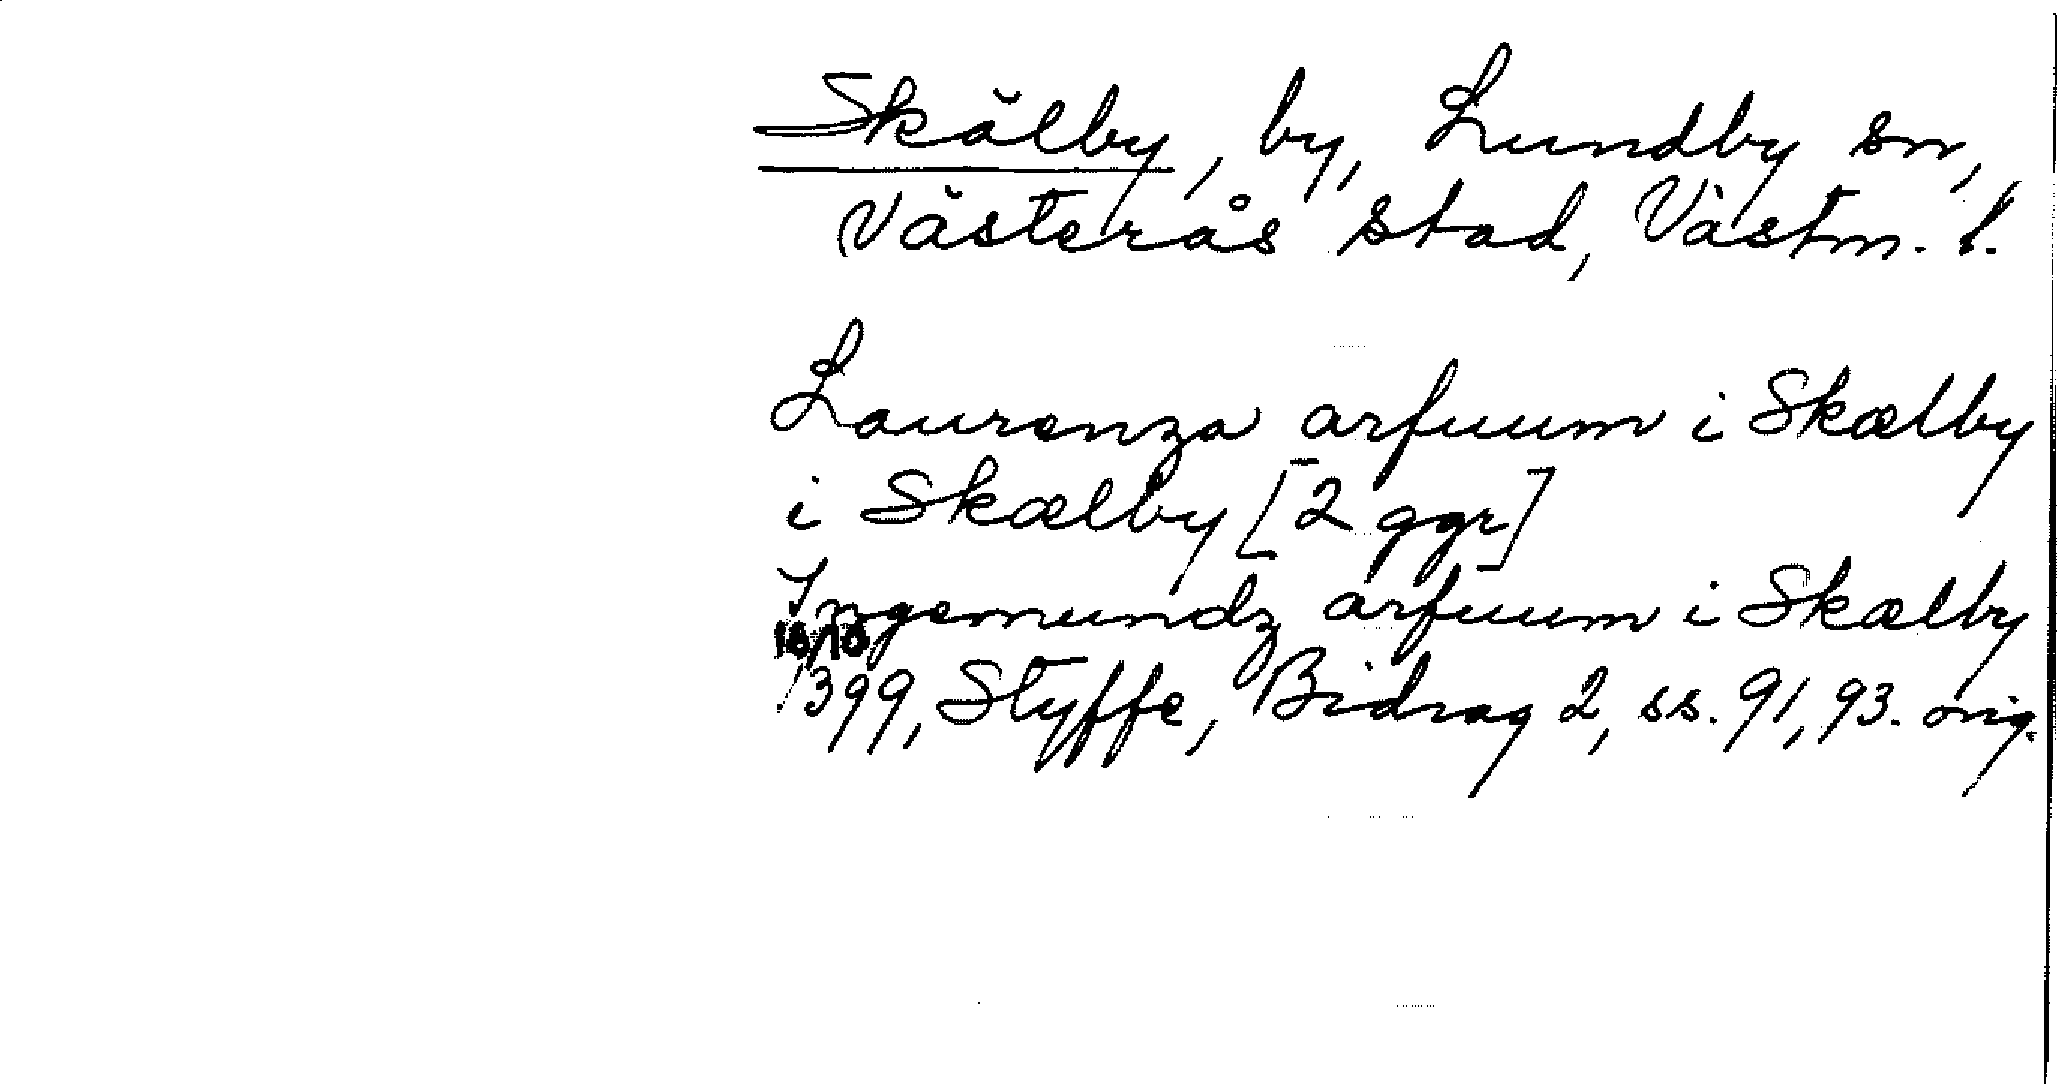 Skälby, by, Lundby sn,
Västerås stad, Västm. l.
Laurenza arfuum i Skælby
i Skælby [2 ggr]
Ingemundz arfuum i Skælby
16/10
1399, Styffe, Bidrag 2, ss. 91, 93. orig.